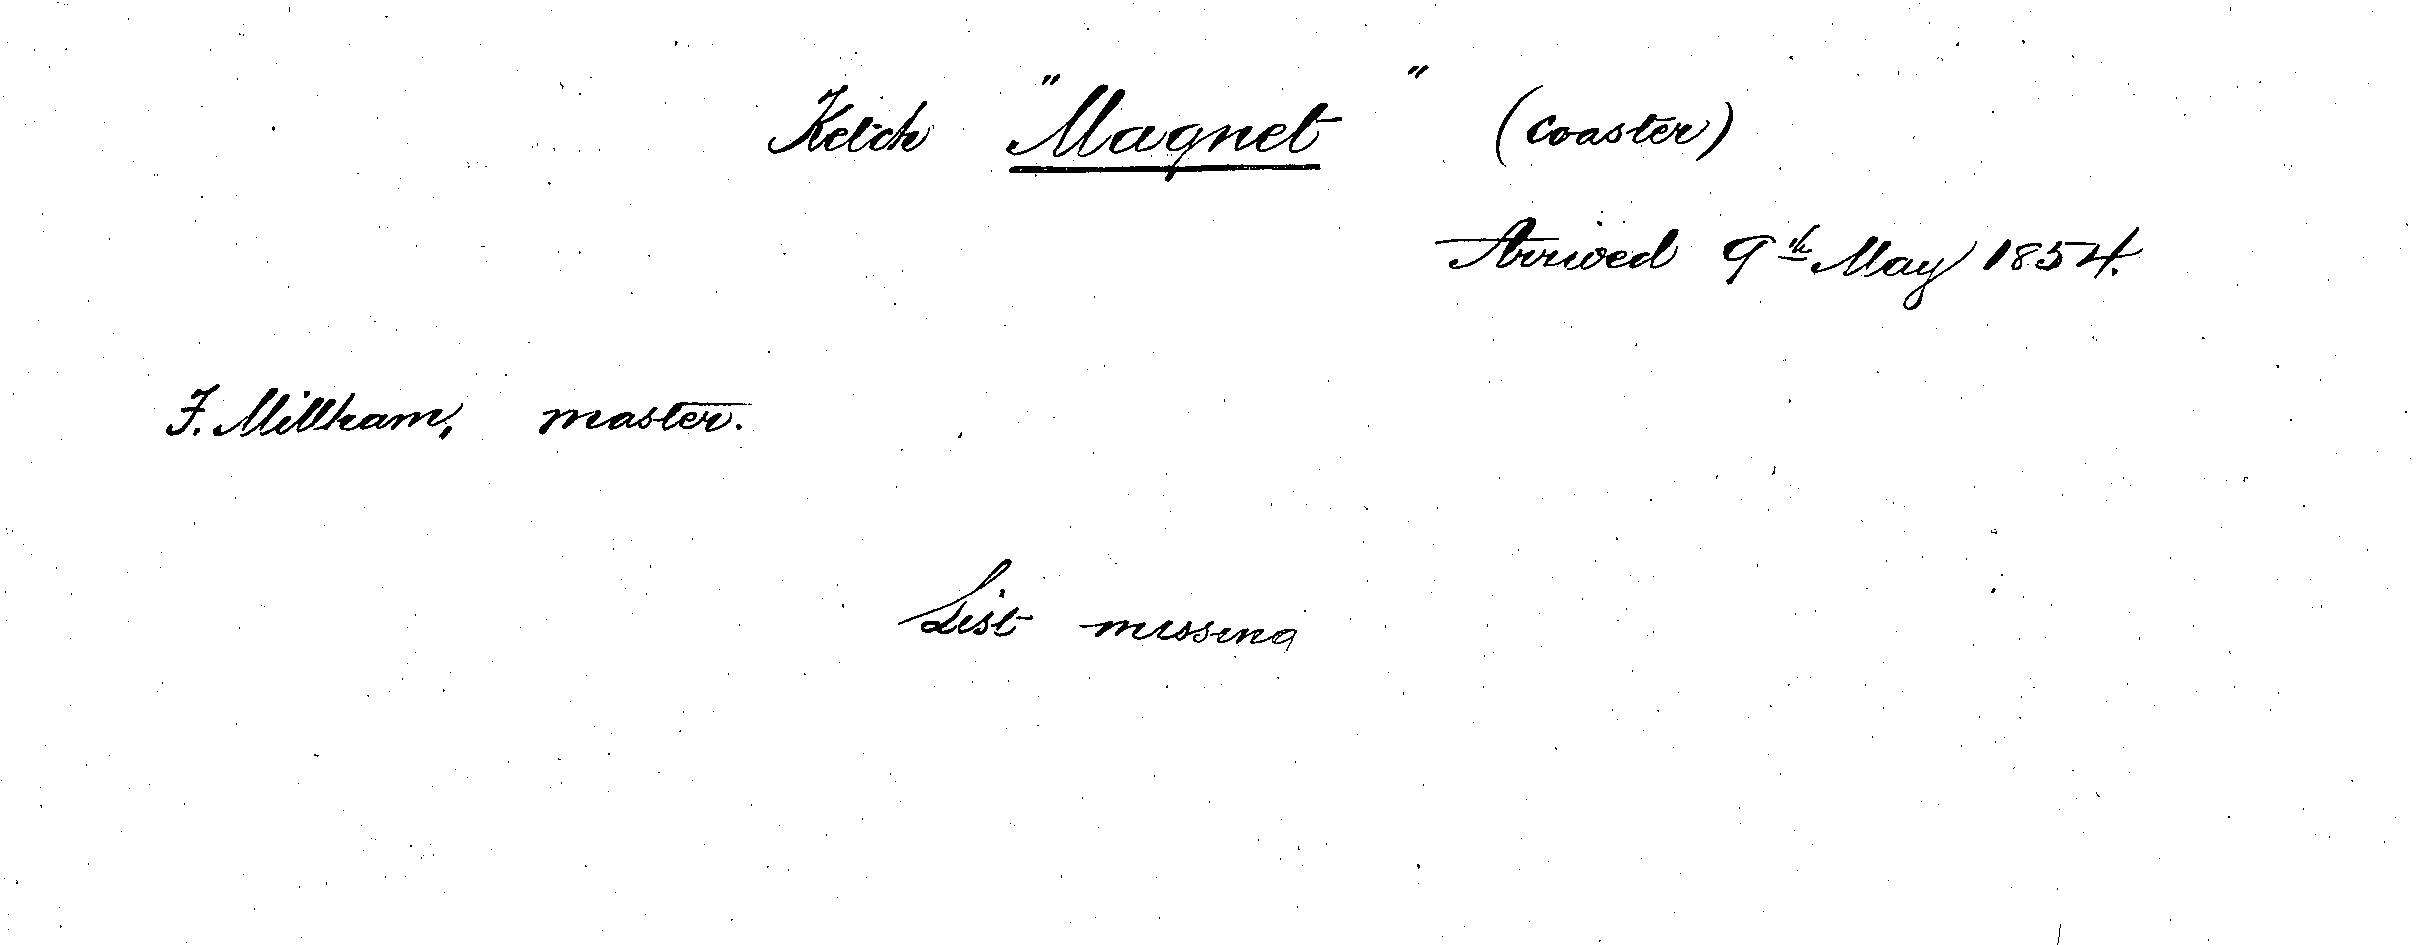 Ketch "Magnet" (coaster)
Arrived 9th May 1854.
F. Millham, master.
List missing